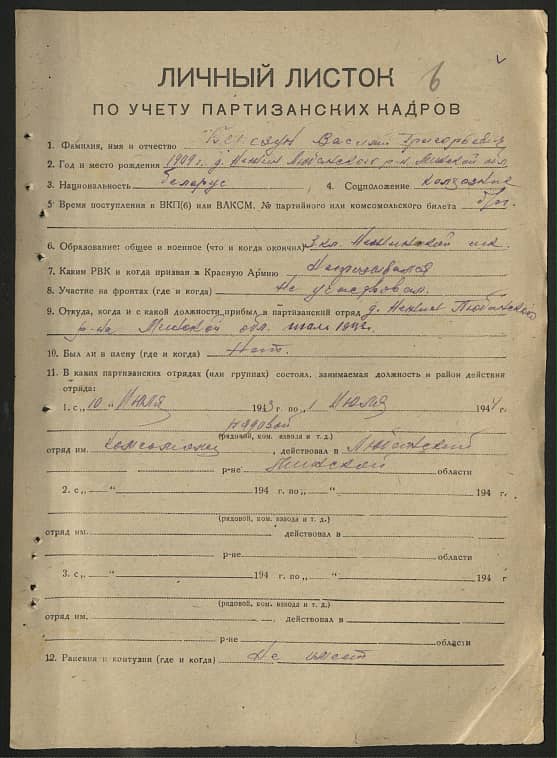 6
ЛИЧНЫЙ ЛИСТОК
ПО УЧЕТУ ПАРТИЗАНСКИХ КАДРОВ
1. Фамилия, имя и отчество Василий Григорьевич
2. Год и место рождения 1909 г. д. Нежин Любанского р-н Минской обл.
3. Национальность беларус 4. Соцположение колхозник
5. Время поступления в ВКП(б) или ВЛКСМ, № партийного или комсомольского билета б/п.
6. Образование: общее и военное (что и когда окончил) 3 кл. Нежинской шк.
7. Каким РВК и когда призван в Красную Армию Не призывался
8. Участие на фронтах (где и когда) Не участвовал.
9. Откуда, когда и с какой должности прибыл в партизанский отряд д. Нежин Любанского
р-на Минской обл. июль 1943 г.
10. Был ли в плену (где и когда) Нет.
11. В каких партизанских отрядах (или группах) состоял, занимаемая должность и район действия
отряда:
1. с „10 " Июля 1943 г. по „1 Июля 1944 г.
рядовой
(рядовой, ком. взвода и т. д.)
отряд им. Комсомолец, действовал в Любанский
р-не Минской области
2. с „ " 194 г. по „ " 194 г.
(рядовой, ком. взвода и т. д.)
отряд им. действовал в
р-не области
3. с „ " 194 г. по „ " 194 г
(рядовой, ком. взвода и т. д.)
отряд им. , действовал в
р-не области
12. Ранения и контузии (где и когда) Не имеет